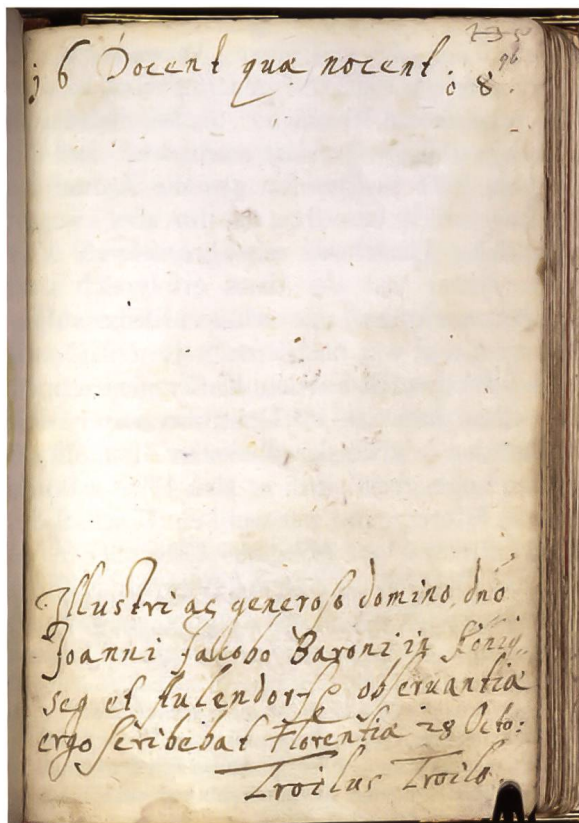 235
96
16 Docent quæ nocent. 08.
Illustri ac generoso domino, dno
Joanni Jacobo Baroni in König,,
seg et Aulendorff observantiæ
ergo scribebat Florentiæ 28 Octo:
Troilus Troilo.